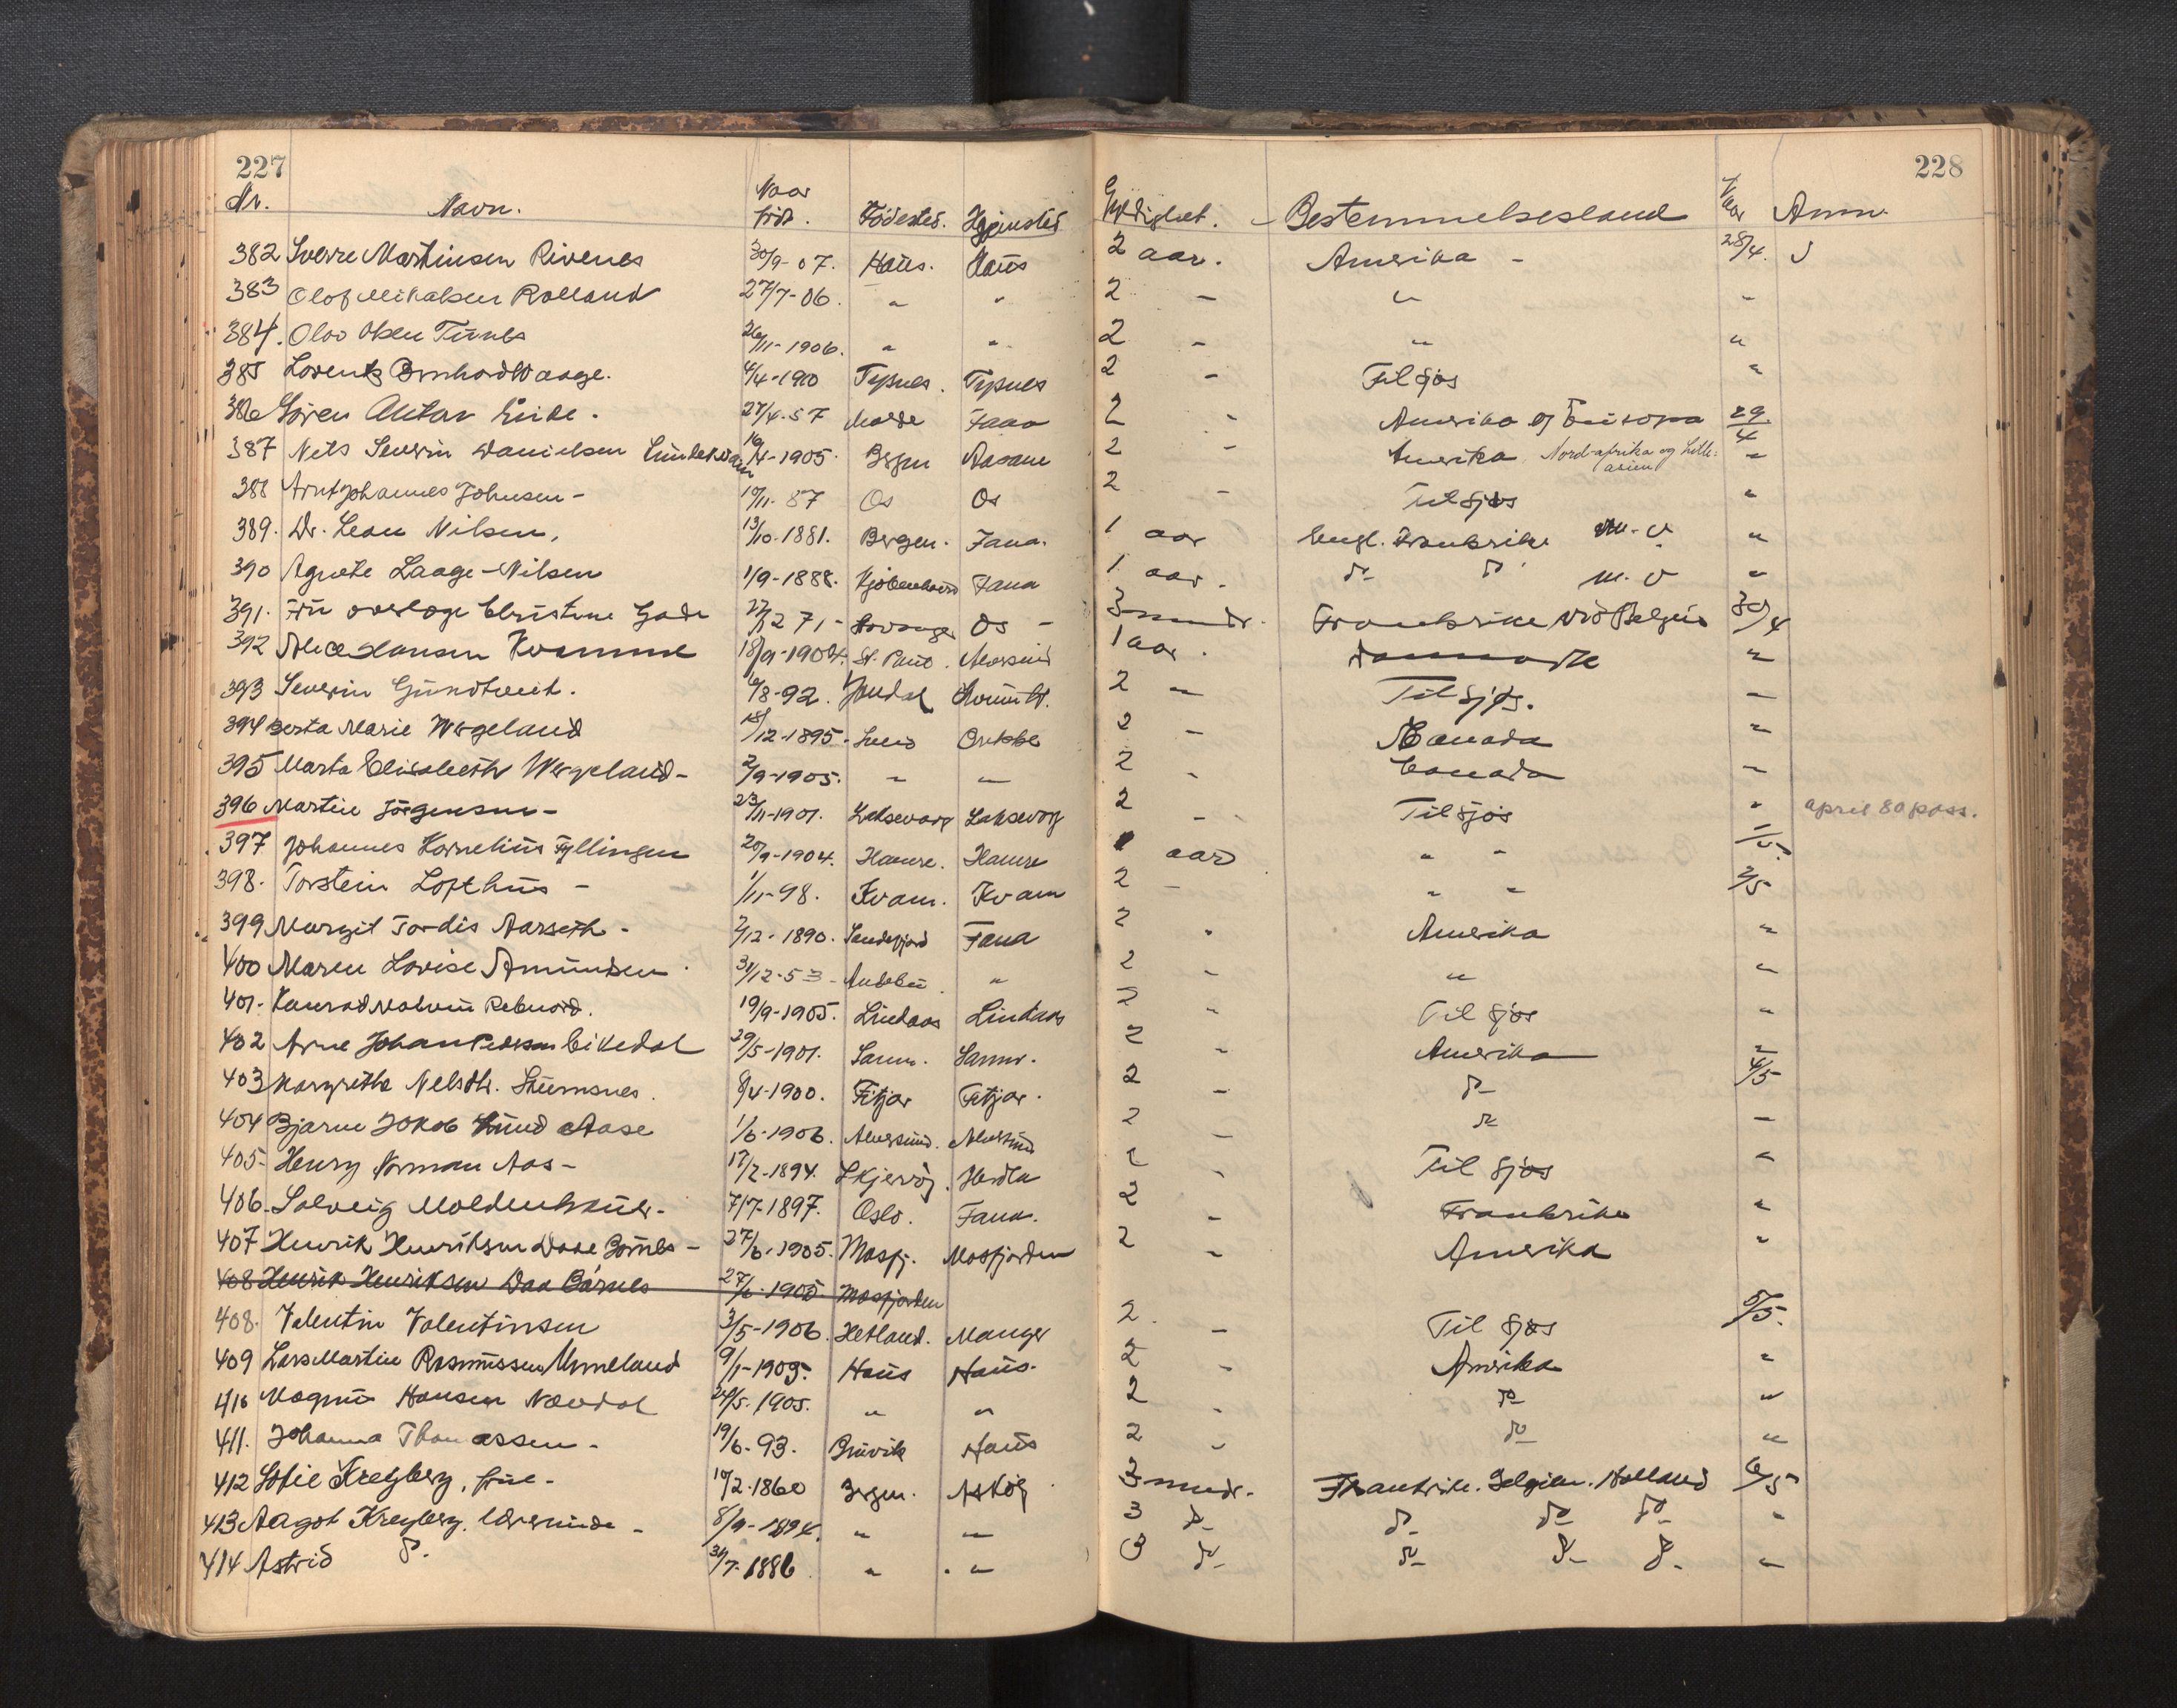 227 228
Nr. Navn. Naar född. Födested. Hjemsted Gyldighet. Bestemmelsesland Naar Anm.
382 Sverre Martinsen Rivenes 30/9-07. Haus. Haus 2 aar. Amerika - 28/4.
383 Olof Mikalsen Rolland 27/7-06. " " 2 - " "
384. Olav Olsen Tunes 26/11-1906. " " 2 - " "
385 Lorentz Bernhard Waage. 4/4-1910 Tysnes. Tysnes 2 - Til sjøs "
386 Sören Anton Linde. 27/4-57 Molde Fana 2 - Amerika og Europa 29/4
387 Nils Severin Danielsen 16/4-1905. Bergen Aasane 2 - Amerika Nord-afrika og Lille-asien "
388 Arnt Johannes Johnsen - 10/11-87 Os Os 2 - Til sjøs "
389. Dr. Leon Nilsen. 13/10-1881. Bergen. Fana. 1 aar Engl. Frankrike m.v. "
390 Agnete Laage-Nilsen 1/9-1888. Kjöbenhavn Fana 1 aar. do do m.v "
391. Fru overlæge Christine Gade 27/12 71- Os - 3 mndr. Frankrike Belgia 30/4
392 Alice Hansen Kvamme 18/9-1904. St. Paul. Alversund 1 aar. Danmark "
393 Severin Gundtveit. 6/8-92. Jondal 2 " Til sjøs. "
394 Berta Marie Wergeland 18/12-1895. Lund 2 - Canada "
395 Marta Elisabeth Wergeland - 2/9-1905. " " 2 - Canada "
396 Martin Jörgensen - 23/11-1901. Laksevaag Laksevåg 2 - Til sjøs " april 80 pass.
397 Johannes Kornelius Fyllingen 20/9-1904. Hamre. Hamre 1 aar " " 1/5.
398. Torstein Lofthus - 1/11-98. Kvam. Kvam 2 - " " 2/5
399 Margit Tordis Aarseth - 2/12-1890. Sandefjord Fana 2 " Amerika "
400 Maren Lovise Amundsen 31/12-53 - Andebu. " 2 - " "
401. Konrad 19/9-1905. Lindaas Lindaas 2 " Til sjøs "
402 Arne Johan Pedersen Eikedal 29/5-1901. Samn. Samn. 2 " Amerika "
403 Margrethe Nelsdtr. 8/4-1900. Fitjar Fitjar. 2 - do 4/5
404 Bjarne Jakob Lund Aase 1/6-1906. Alversund. Alversund 2 - do "
405- Henry Norman Aas - 17/2-1894. Skjervøy. Herdla 2 - Til sjøs "
406. Solveig Moldenhauer. 7/7-1897. Oslo. Fana. 2 - Frankrike "
407 Henrik Henriksen Daae Börnes - 27/6-1905. Mosfj. Mosfjorden 2 - Amerika "
408 Henrik Henriksen Daa Børnes 27/6-1905 Mosfjorden
408. Valentin Valentinsen 3/5-1906. Hetland. Manger 2. - Til sjøs 5/5.
409 Lars Martin Rasmussen Unneland 9/1-1905. Haus Haus. 2 - Amerika "
410 Magnus Hansen Nævdal 24/5-1905. " " 2 - do "
411. Johanna Thomassen - 19/6-93. Bruvik Haus 2 - do "
412 Sofie Kreyberg, frue - 10/2-1860 Bergen. Askøy 3 mndr. Frankrike. Belgien. Holland 6/5
413 Aagot Kreyberg. lærerinde - 8/9-1894. " " 3 do do do do "
414 Astrid do. 31/7-1886 " " 3 do do do do "